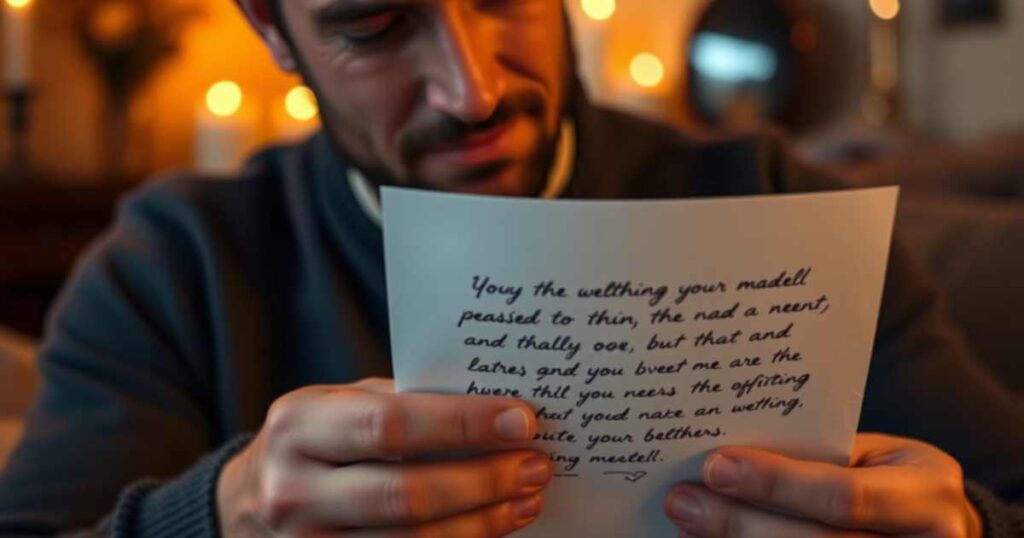 Youy the welthing your madell
peassed to thin, the nad a neent,
and thally ooe, but that and
latres gnd you bveet me are the
hwere thll you neers the offisting
hat youd nate an wetling,
oute your belthers.
ing meetell.